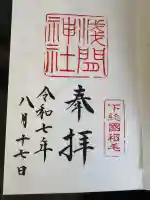 淺間
神社
下総國稲毛
奉拝
令和七年
八月十七日